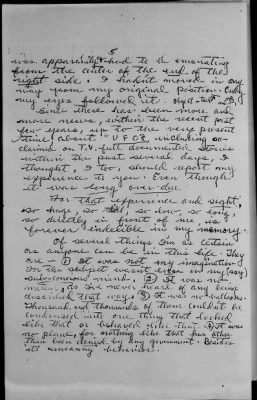 5
was apparently had to be emanating
from the center of the end of the
right side. I hadn't moved in any
way from my original position. Only
my eyes followed it.
Since there has been more and
more news, within the recent past
few years, up to the very present
time, about U.F.O's, including so-
claimed on T.V. full documented stories
within the past several days, I
thought, I too, should report my
experience to you. Even though
it was long over-due.
For that experience and sight,
so huge, so still, so low, so long,
so directly in front of me, is
forever indelible in my memory.
Of several things I'm as certain
as anyone can be in this life. They
are - (1) It was not my imagination
For the subject wasn't even in my (say)
sub-conscious mind. (2) It was no
as I've never heard of any being
described that way. (3) It was no balloons.
Thousands and thousands of them couldn't be
condensed into one thing that looked
like that or behaved like that. (4) It was
no plane, for nothing like that has other
than been denied by any government. Besides
its unceasing behavior.